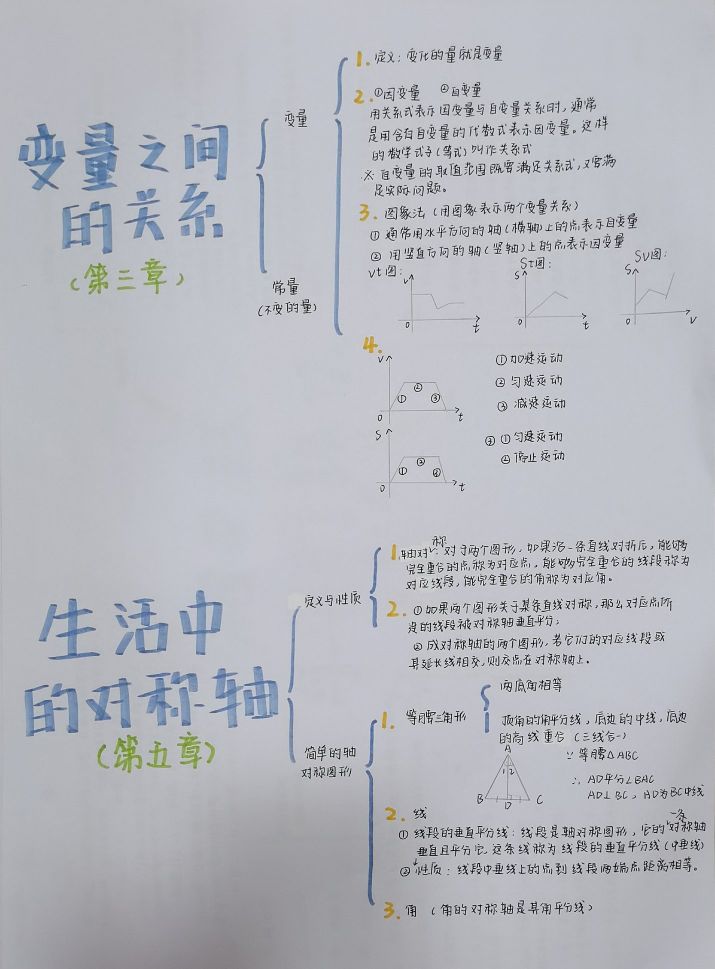 变量之间
的关系
(第三章)
变量
常量
(不变的量)
1. 定义:变化的量就是变量
2. ①因变量 ②自变量
用关系式表示因变量与自变量关系时,通常
是用含有自变量的代数式表示因变量。这样
的数学式子(等式)叫作关系式
※ 自变量的取值范围既要满足关系式,又要满
足实际问题。
3. 图象法(用图象表示两个变量关系)
① 通常用水平方向的轴(横轴)上的点表示自变量
② 用竖直方向的轴(竖轴)上的点表示因变量
vt图: St图: SV图:
v 0 t
s 0 t
s 0 v
4.
v ① ② ③ 0 t
① 加速运动
② 匀速运动
③ 减速运动
S ① ② 0 t
① 匀速运动
② 停止运动
生活中
的对称轴
(第五章)
定义与性质
1. 轴对称:对于两个图形,如果沿一条直线对折后,能够
完全重合的点称为对应点,能够完全重合的线段称为
对应线段,能完全重合的角称为对应角。
2. ①如果两个图形关于某条直线对称,那么对应点所
连的线段被对称轴垂直平分;
② 成对称轴的两个图形,若它们的对应线段或
其延长线相交,则交点在对称轴上。
简单的轴
对称图形
1. 等腰三角形
两底角相等
顶角的角平分线,底边的中线,底边
的高线重合(三线合一)
A 1 2 B D C
∵ 等腰△ABC
∴ AD平分∠BAC
AD⊥BC,AD为BC中线
2. 线
① 线段的垂直平分线:线段是轴对称图形,它的一条对称轴
垂直且平分它,这条线称为线段的垂直平分线(中垂线)
② 性质:线段中垂线上的点到线段两端点距离相等。
3. 角 (角的对称轴是其角平分线)